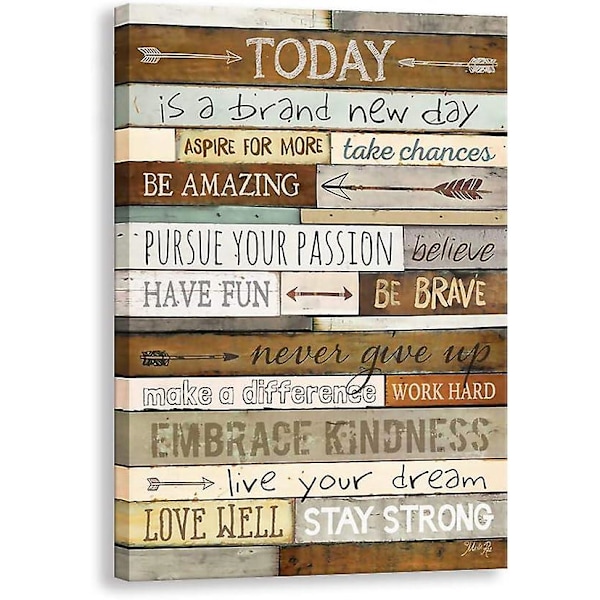 TODAY
is a brand new day
ASPIRE FOR MORE take chances
BE AMAZING
PURSUE YOUR PASSION believe
HAVE FUN BE BRAVE
never give up
make a difference WORK HARD
EMBRACE KINDNESS
live your dream
LOVE WELL STAY STRONG